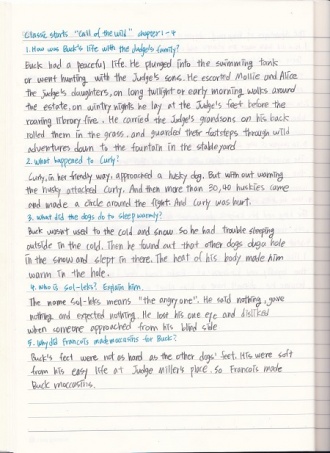 Classic starts "Call of the wild" chapter 1-4
1. How was Buck's life with the Judge's family?
Buck had a peaceful life. He plunged into the swimming tank
or went hunting with the Judge's sons. He escorted Mollie and Alice
the Judge's daughters, on long twilight or early morning walks around
the estate, on wintry nights he lay at the Judge's feet before the
roaring library fire. He carried the Judge's grandsons on his back
rolled them in the grass, and guarded their footsteps through wild
adventures down to the fountain in the stable yard
2. what happened to Curly?
Curly, in her friendly way, approached a husky dog. But with out warning
the husky attacked Curly. And then more than 30, 40 huskies came
and made a circle around the fight. And Curly was hurt.
3. what did the dogs do to sleep warmly?
Buck wasn't used to the cold and snow. So he had trouble sleeping
outside in the cold. Then he found out that other dogs dug a hole
in the snow and slept in there. The heat of his body made him
warm in the hole.
4. who is sol-leks? Explain him.
The name sol-leks means "the angry one". He said nothing, gave
nothing and expected nothing. He lose his one eye and disliked
when someone approached from his blind side
5. Why did Francois made moccasins for Buck?
Buck's feet were not as hard as the other dogs' feet. His were soft
from his easy life at Judge Miller's place. So Francois made
Buck moccasins.